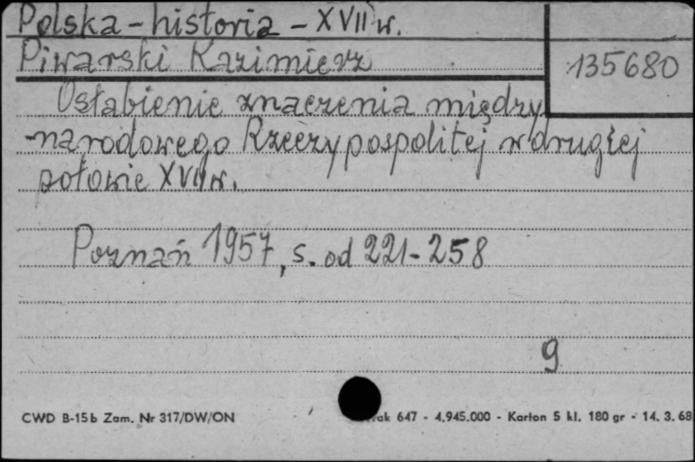 Polska - historia - XVII w.
Piwarski Kazimierz
135680
Osłabienie znaczenia między
-narodowego Rzeczypospolitej w drugiej
połowie XVII w.
Poznań 1957, s. od 221-258
9
CWD B-15b Zam. Nr 317/DW/ON
647 - 4.945.000 - Karton 5 kl. 180 gr - 14. 3. 68